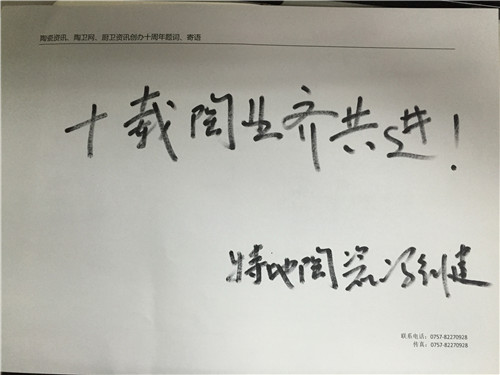 陶瓷资讯、陶卫网、厨卫资讯创办十周年题词、寄语
十载陶业齐共进!
特地陶瓷冯剑建
联系电话:0757-82270928
传真:0757-82270928